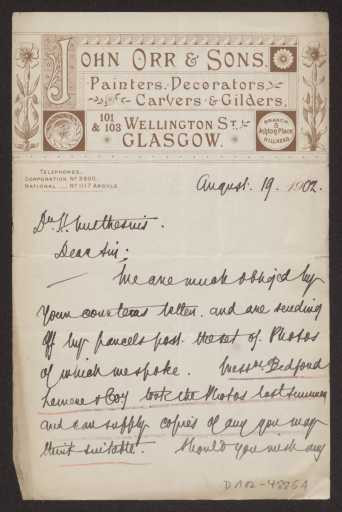 JOHN ORR & SONS.
Painters, Decorators,
Carvers & Gilders,
101 & 103 WELLINGTON ST.
GLASGOW.
BRANCH 5 Ashton Place HILLHEAD.
TELEPHONES.
CORPORATION Nº 3900.
NATIONAL ... Nº 1117 ARGYLE
August. 19. 1902.
Dr. H. Muthesius.
Dear Sir;
We are much obliged by
Your courteous letter. and are sending
off by parcels post. the set of. Photos
of which we spoke. Messrs. Bedford
Lemere & Coy took the Photos last summer
and can supply copies of any you may
think suitable. Should you wish any
D 102-4885A